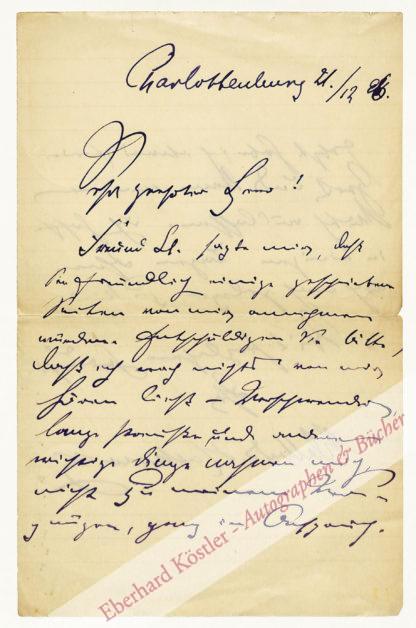 Charlottenburg 21./12 86.
Sehr geehrter Herr!
Freund H. sagte mir, daß
Sie freundlich einige geschriebene
Seiten von mir annehmen
würden. Entschuldigen Sie bitte,
daß ich noch nichts von mir
hören ließ –
lange und andere
wichtige Dinge nahmen mich,
nicht zu meinem Ver-
gnügen, ganz in Anspruch.
Eberhard Köstler - Autographen & Bücher